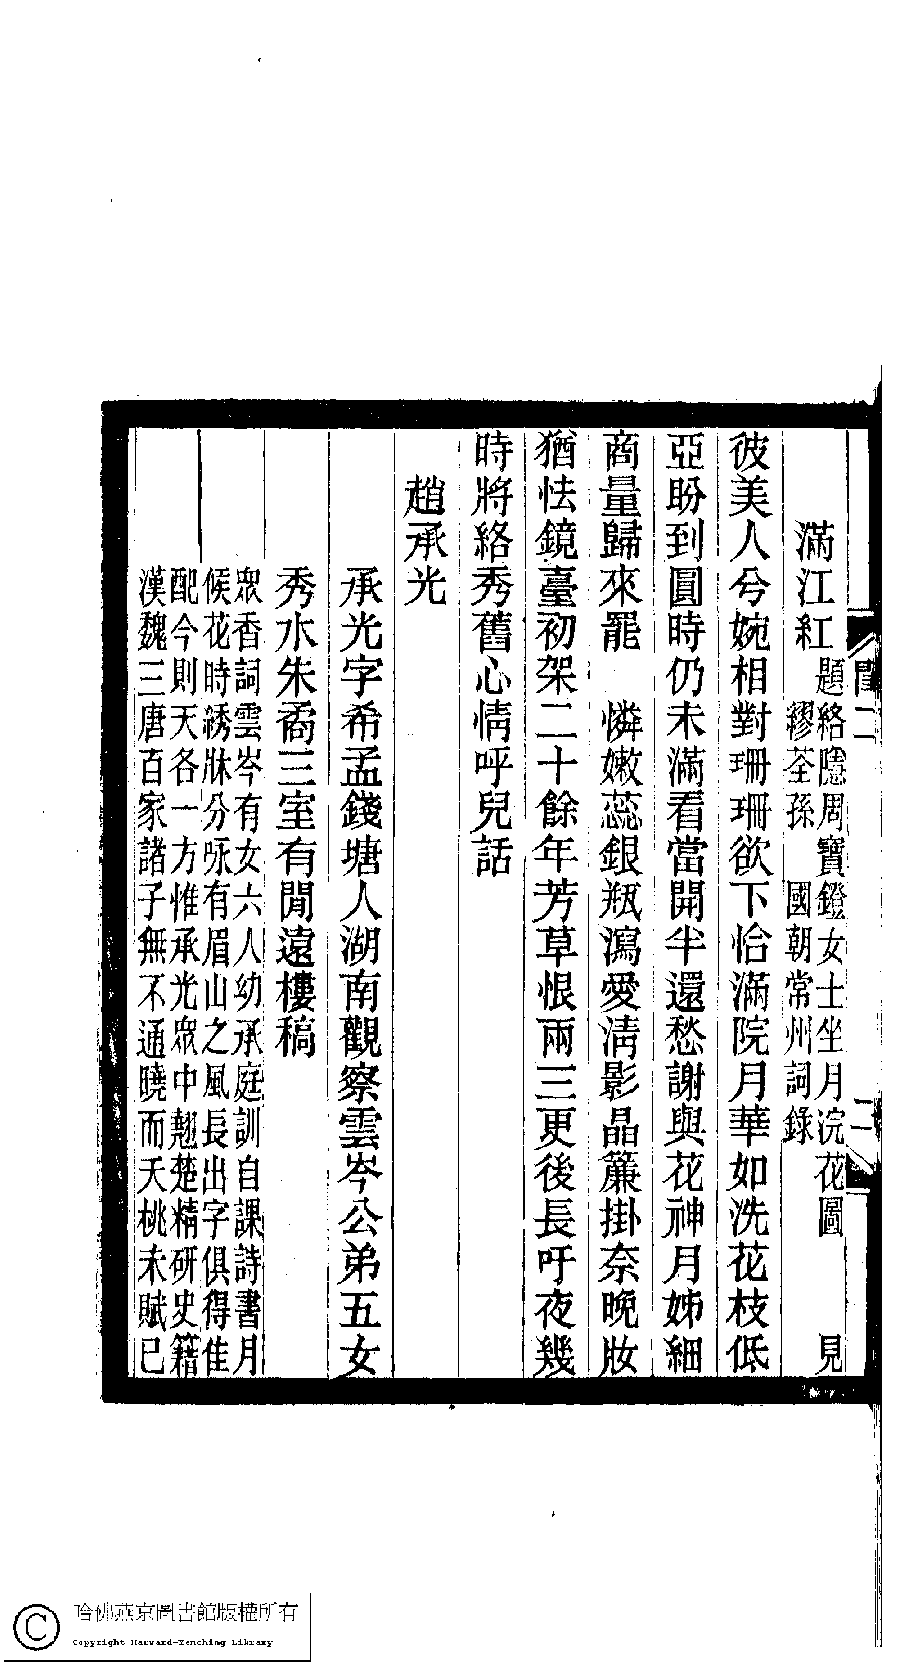 閨二
二
滿江紅 題絡隱周寶鐙女士坐月浣花圖 見
繆荃孫 國朝常州詞錄
彼美人兮婉相對珊珊欲下恰滿院月華如洗花枝低
亞盼到圓時仍未滿看當開半還愁謝與花神月姊細
商量歸來罷 憐嫩蕊銀瓶瀉愛清影晶簾掛奈晚妝
猶怯鏡臺初架二十餘年芳草恨兩三更後長吁夜幾
時將絡秀舊心情呼兒話
趙承光
承光字希孟錢塘人湖南觀察雲岑公弟五女
秀水朱矞三室有閒遠樓稿
眾香詞雲岑有女六人幼承庭訓自課詩書月
候花時綉牀分咏有眉山之風長出字俱得佳
配今則天各一方惟承光眾中翹楚精研史籍
漢魏三唐百家諸子無不通曉而夭桃未賦已
哈佛燕京圖書館版權所有
Copyright Harvard-Yenching Library